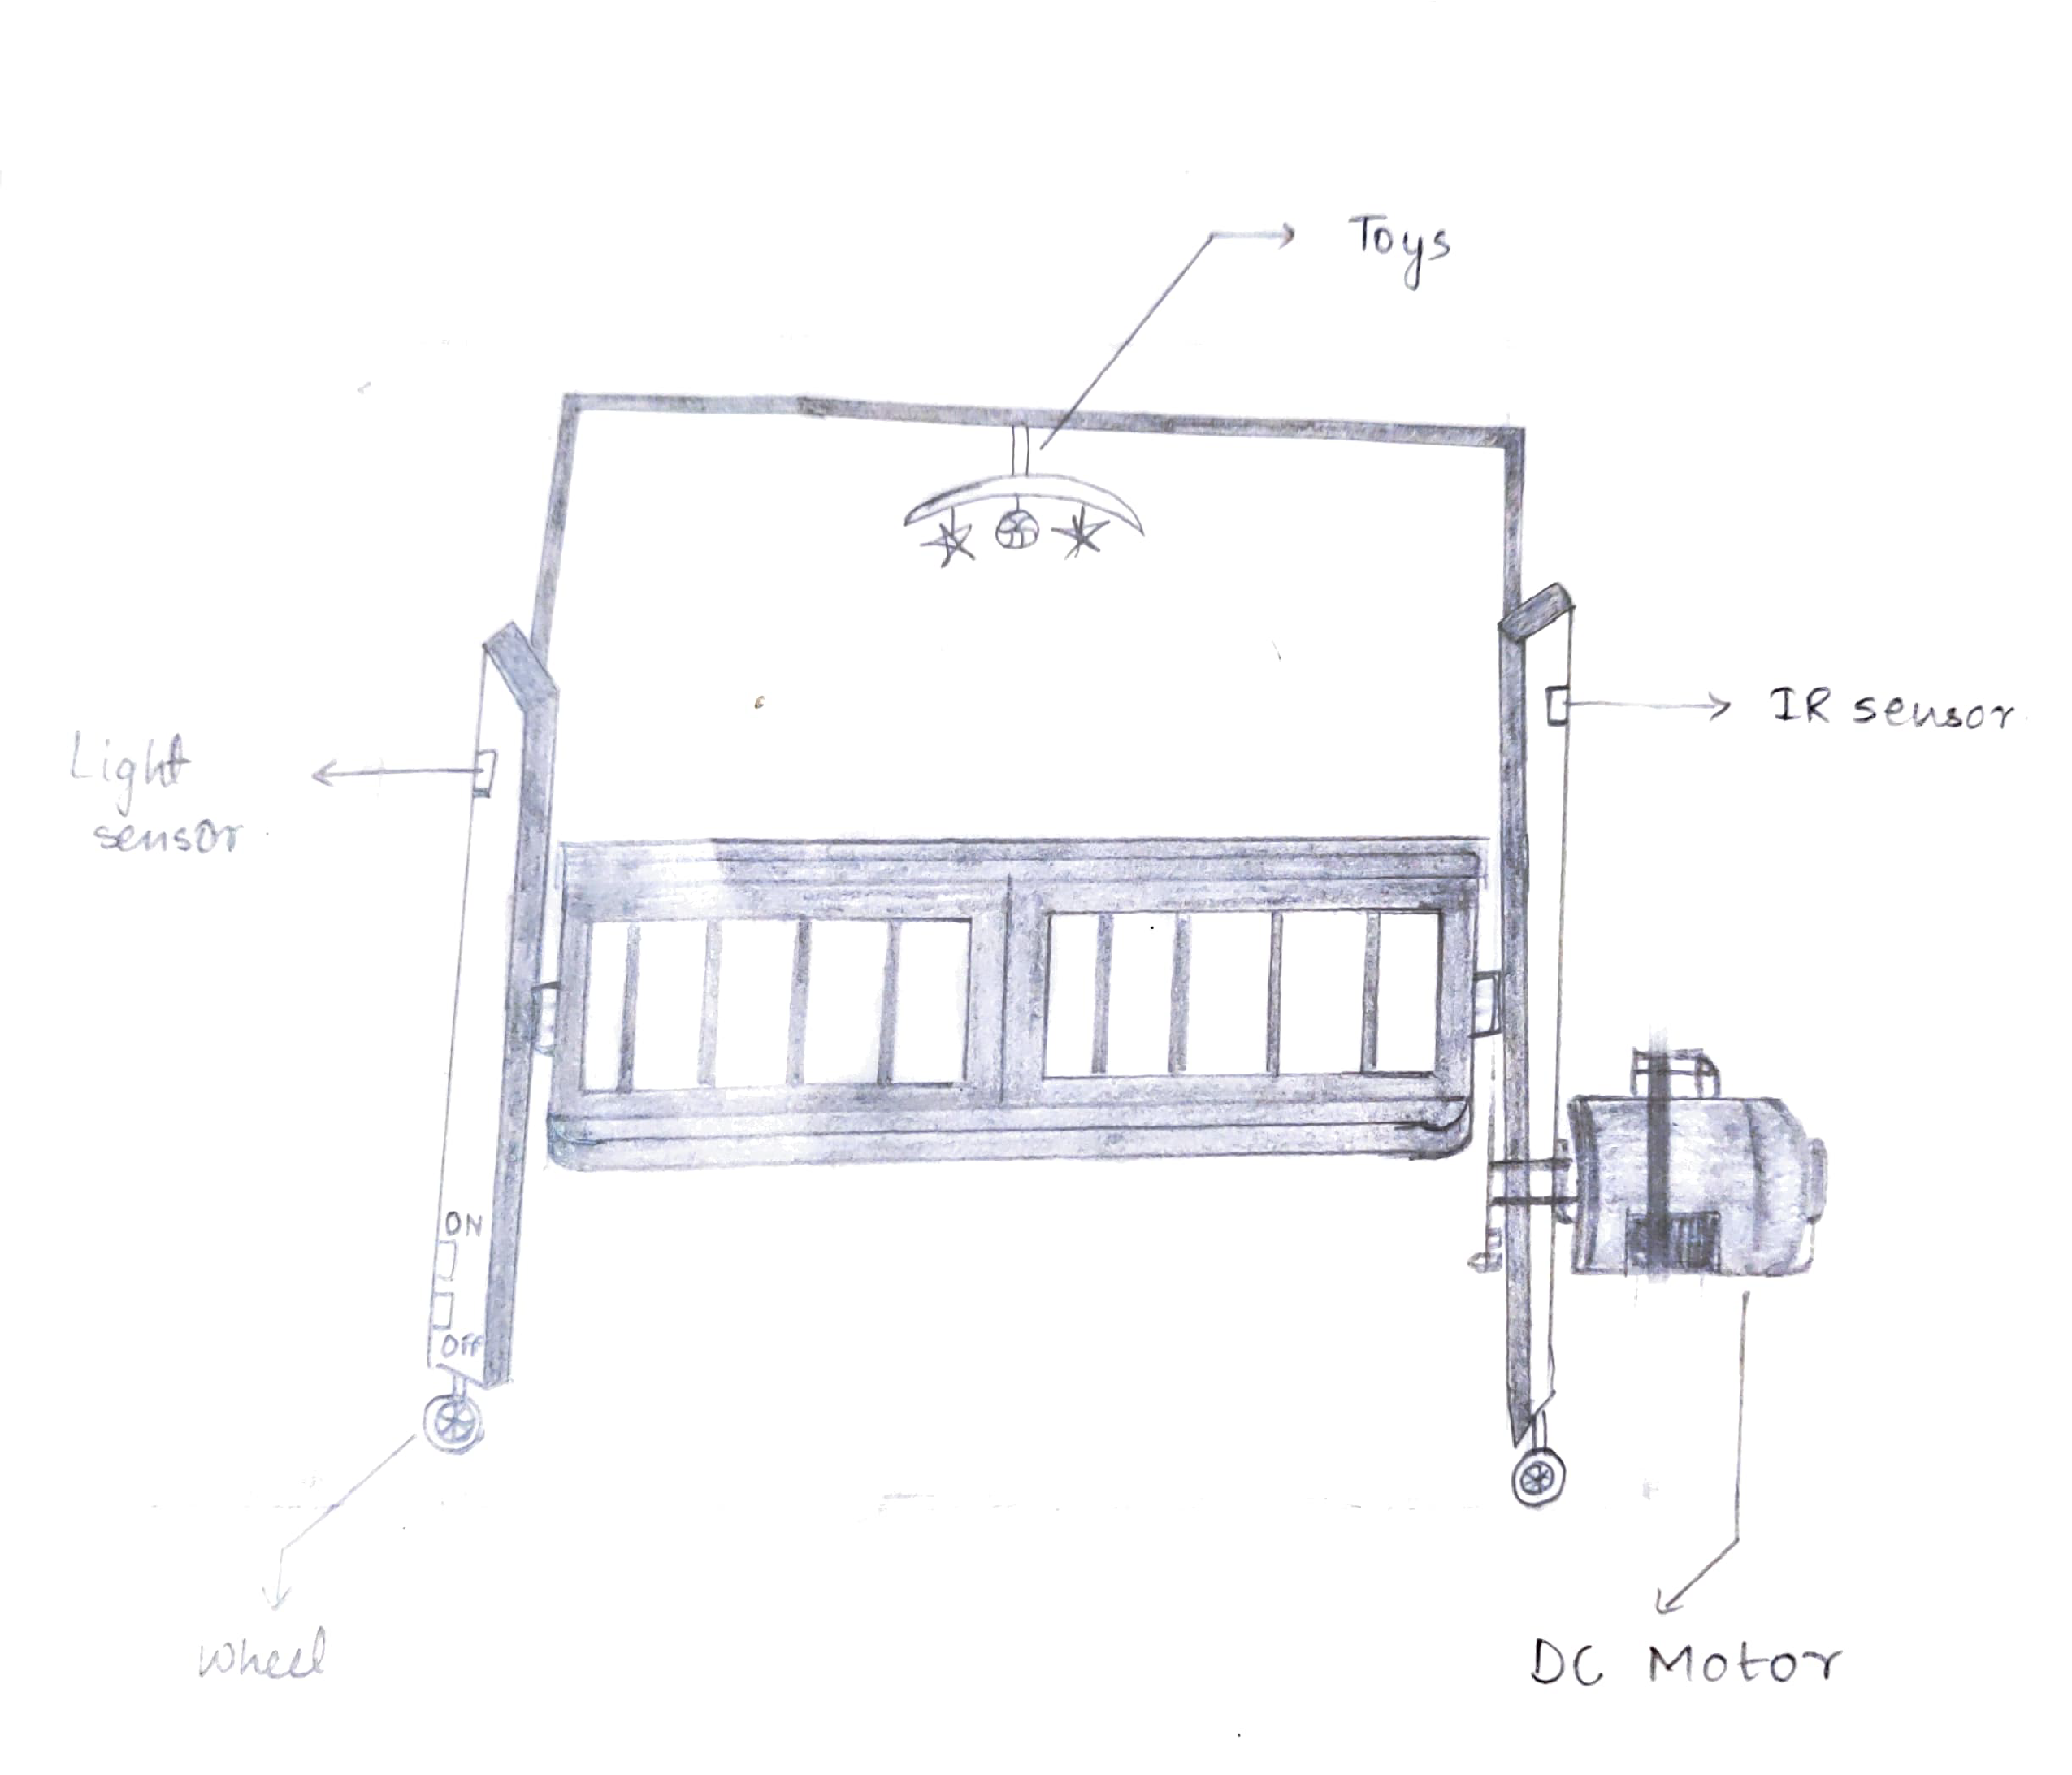 Toys
IR sensor
Light
sensor
ON
Off
Wheel
DC Motor